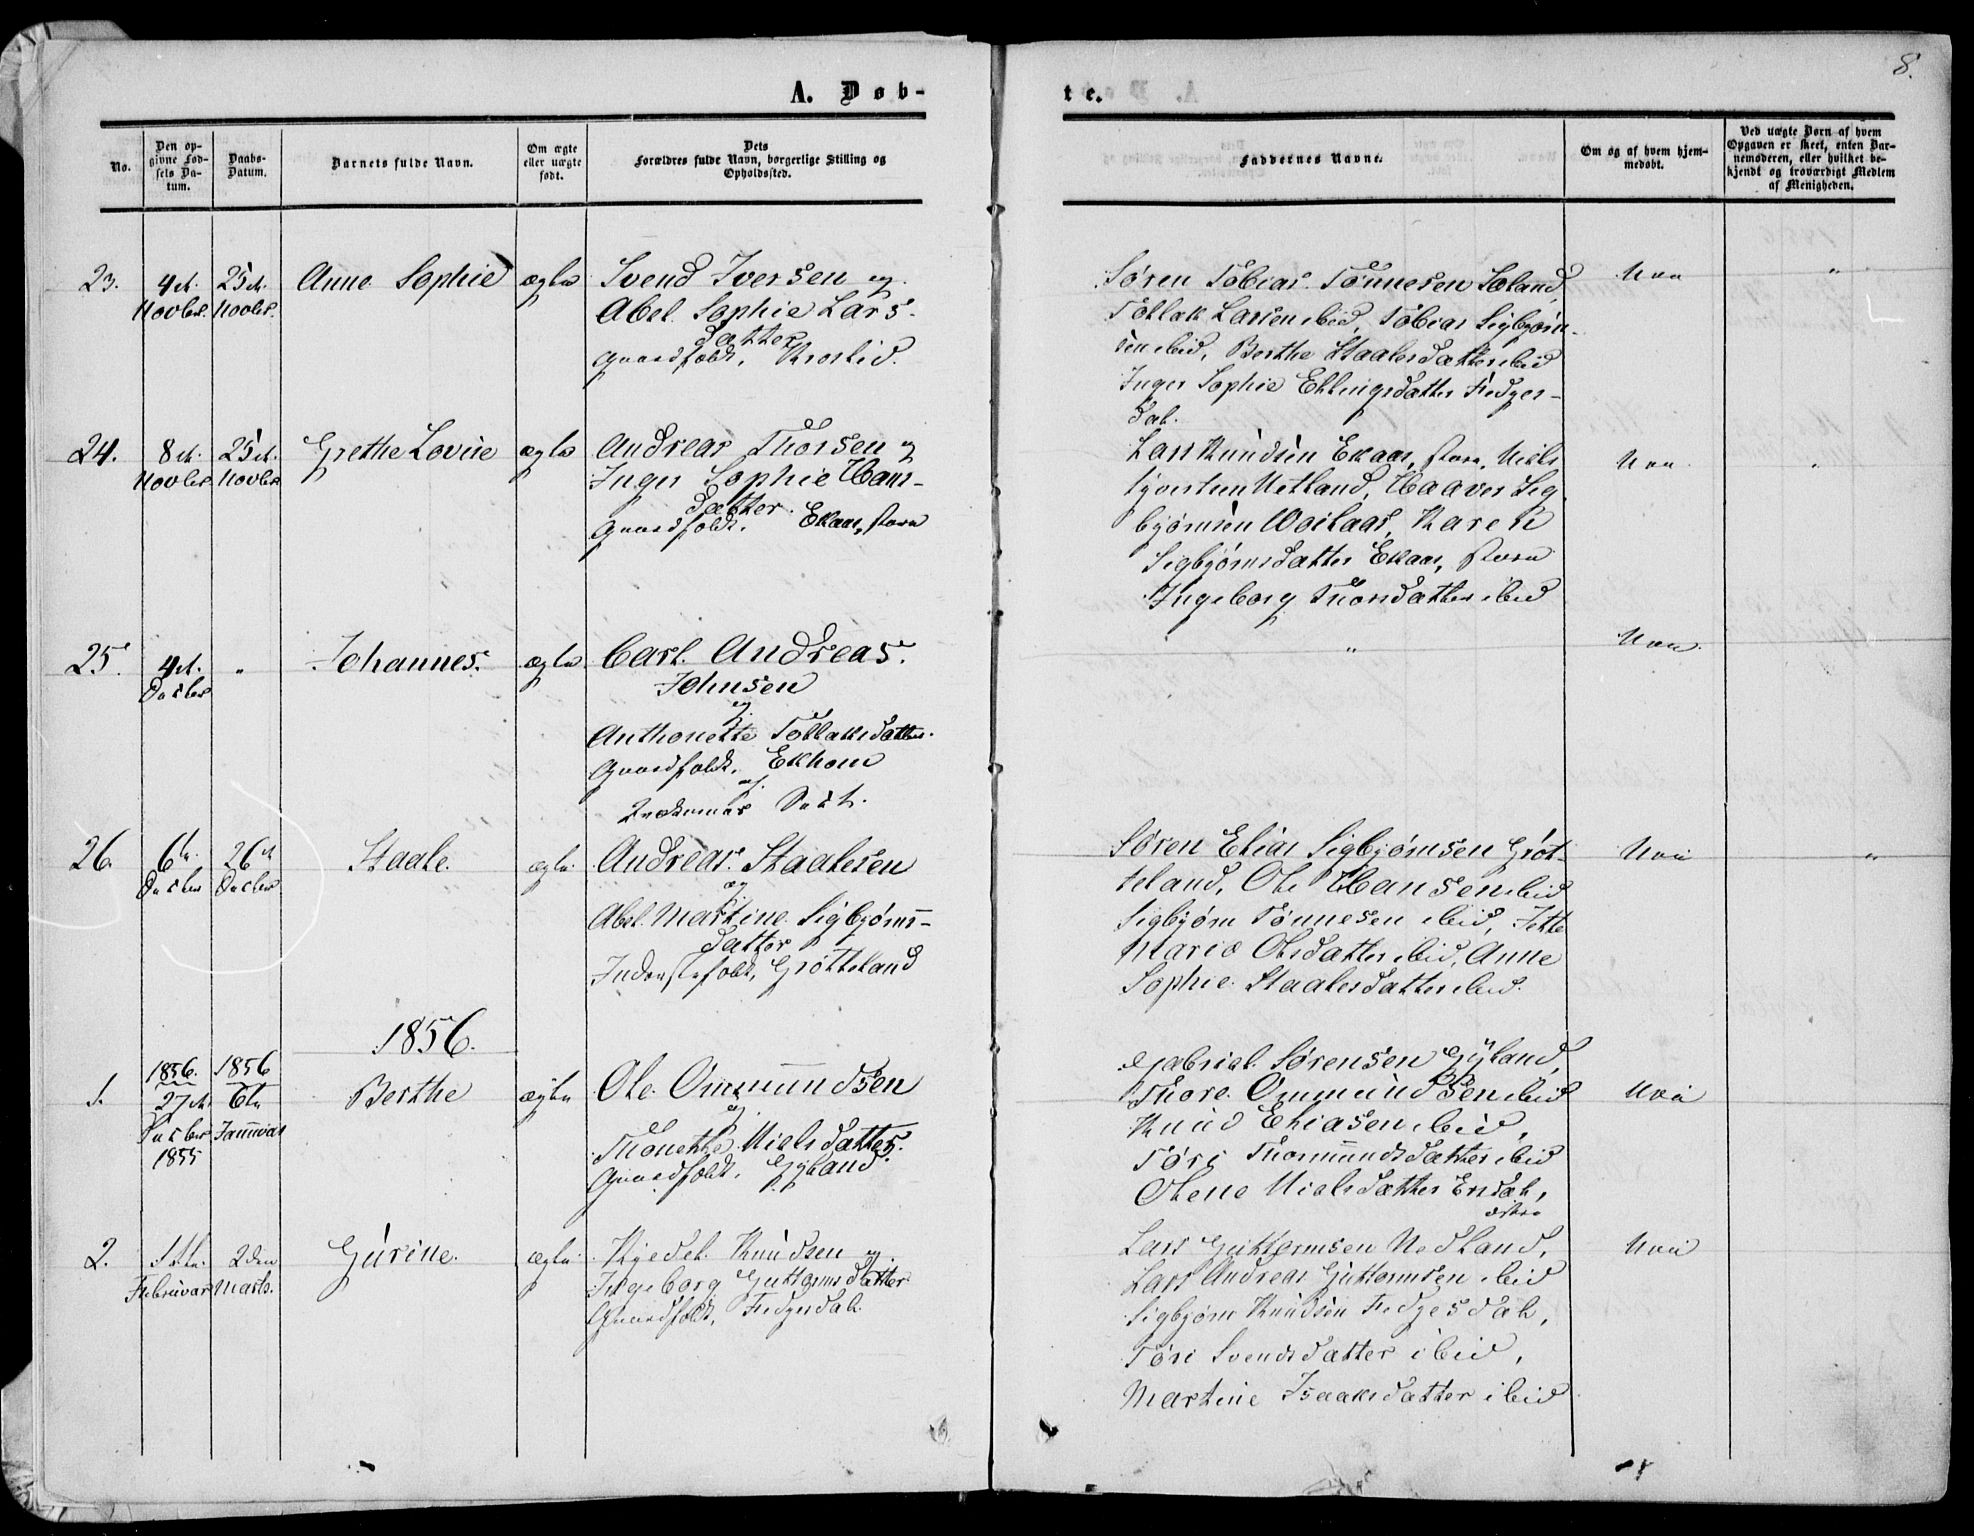 8.
A. Døb-
te.
No.
Den op-
givne Fød-
sels Da-
tum.
Daabs-
Datum.
Barnets fulde Navn.
Om ægte
eller uægte
født.
Dets
Forældres fulde Navn, borgerlige Stilling og
Opholdssted.
Faddernes Navne.
Om og af hvem hjem-
medøbt.
Ved uægte Børn af hvem
Opgaven er skeet, enten Bar-
nemoderen, eller hvilket be-
kjendt og troværdigt Medlem
af Menigheden.
23.
4de
Novbr.
25de
Novbr.
Anne Sophie
ægte
Svend Iversen og
Abel Sophie Lars-
datter
Gaardfolk,
Søren Tobias Tønnesen Søland,
Tollak Larsen ibid, Tobias Sigbjørn-
sen ibid, Berthe Staalesdatter ibid
Inger Sophie Ellingsdatter Fedjes-
dal.
Nei
"
24.
8de
Novbr.
25de
Novbr.
Grethe Lovise
ægte
Andreas Thorsen og
Inger Sophie Hans-
datter.
Gaardfolk. Ekaas, store
Lars Knudsen Ekaas, store, Niels
Netland, Haaver Sig
bjørnsen Karen
Sigbjørnsdatter Ekaas, store
Ingeborg Thorsdatter ibid
Nei
"
25.
4de
Decbr
"
Johannes.
ægte
Carl Andreas
Johnsen
og
Anthonette Tollaksdatter.
Gaardfolk. Ekhom
"
Nei
26.
6te
Decbr
26de
Decbr
Staale.
ægte
Andreas Staalesen
og
Abel Martine Sigbjørns-
datter
Inderstefolk, Grøtteland
Søren Elias Sigbjørnsen Grøt-
teland, Ole Hansen ibid
Sigbjørn Tønnesen ibid, Jette
Marie Olsdatter ibid, Anne
Sophie Staalesdatter ibid.
Nei
"
1856.
1.
1856.
27de
Decbr
1855
1856
6te
Januar
Berthe
ægte
Ole Ommundsen
og
Thonette Nielsdatter.
Gaardfolk. Gyland.
Gabriel Sørensen Gyland,
Thore Ommundsen ibid
Knud Eliasen ibid,
Tøri Thormundsdatter ibid
Olene Nielsdatter Erdal,
østre
Nei
2.
1ste
Februar
2den
Marts.
Gurine.
ægte
Kjedel Knudsen og
Ingeborg Guttormsdatter
Gaardfolk, Fedjesdal.
Lars Guttormsen Nedland,
Lars Andreas Guttormsen ibid
Sigbjørn Knudsen Fedjesdal,
Tøri Svendsdatter ibid,
Martine Isaaksdatter ibid
Nei